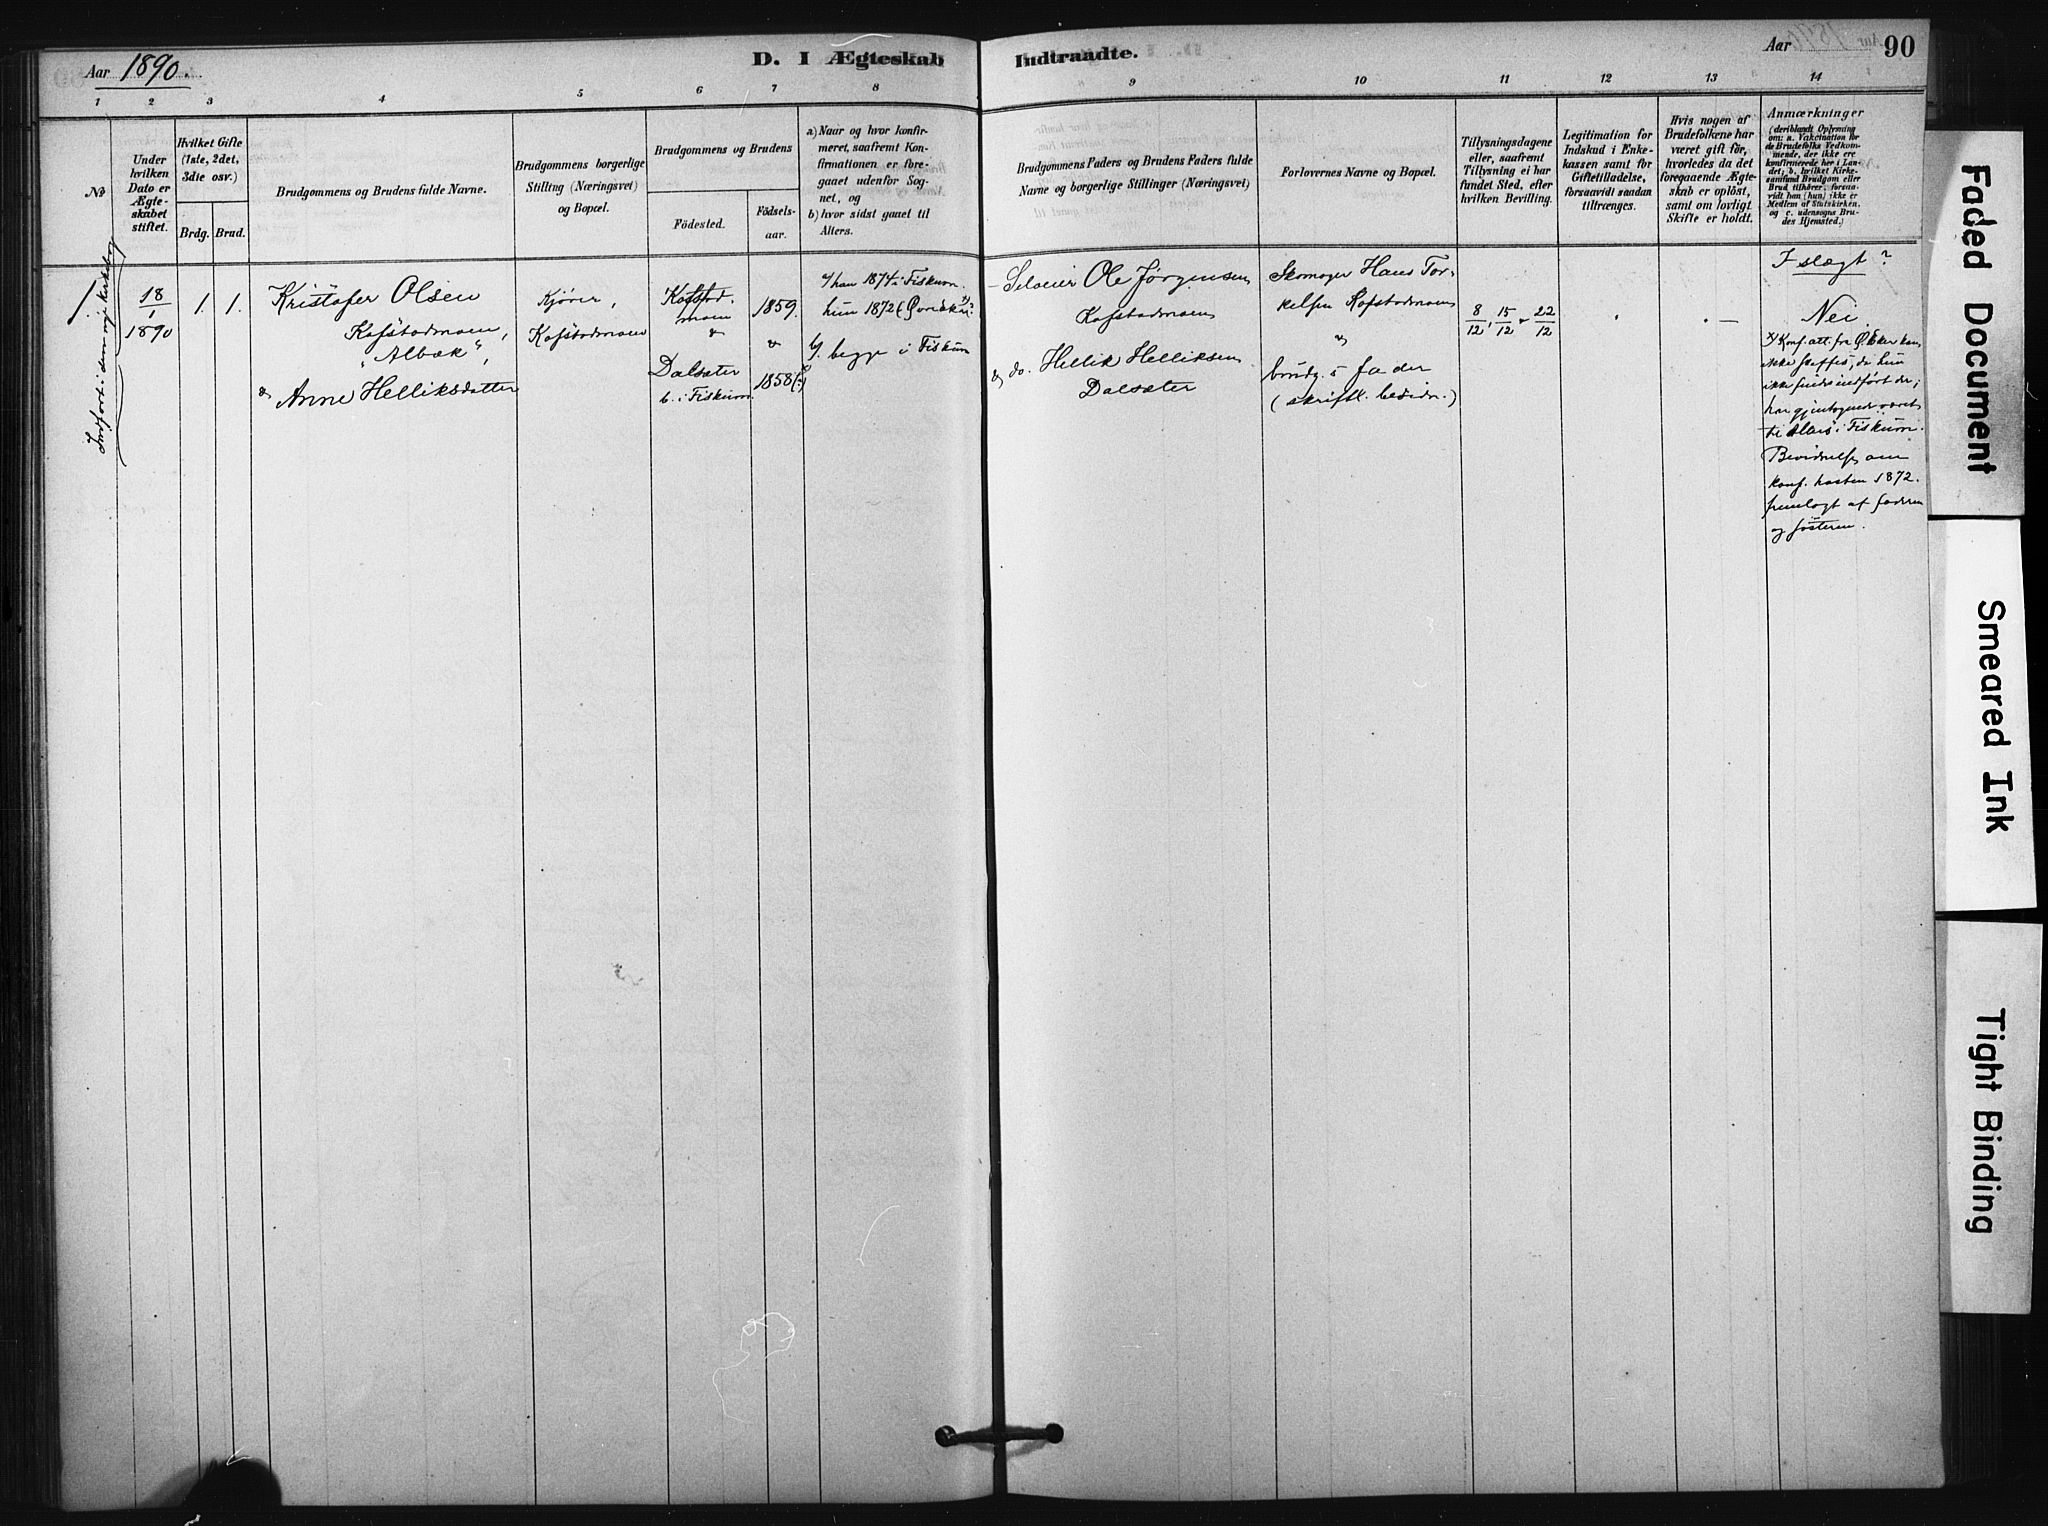 Aar 1890.
D. I Ægteskab Indtraadte.
Aar 90
1 2 3 4 5 6 7 8 9 10 11 12 13 14
No
Under hvilken Dato er Ægteskabet stiftet.
Hvilket Gifte (1ste, 2det, 3die osv.)
Brdg. Brud.
Brudgommens og Brudens fulde Navne.
Brudgommens borgerlige Stilling (Næringsvei) og Bopæl.
Brudgommens og Brudens
Födested.
Födselsaar.
a) Naar og hvor konfirmeret, saafremt Konfirmationen er foregaaet udenfor Sognet, og
b) hvor sidst gaaet til Alters.
Brudgommens Faders og Brudens Faders fulde Navne og borgerlige Stillinger (Næringsvei)
Forlovernes Navne og Bopæl.
Tillysningsdagene eller, saafremt Tillysning ei har fundet Sted, efter hvilken Bevilling.
Legitimation for Indskud i Enkekassen samt for Giftetilladelse, forsaavidt saadan tiltrænges.
Hvis nogen af Brudefolkene har været gift för, hvorledes da det foregaaende Ægteskab er oplöst, samt om lovligt Skifte er holdt.
Anmærkninger
(deriblandt Oplysning om: a. Vakcination for de Brudefolks Vedkommende, der ikke ere konfirmerede her i Landet; b. hvilket Kirkesamfund Brudgom eller Brud tilhörer, forsaavidt han (hun) ikke er Medlem af Statskirken, og c. udensogns Brudes Hjemsted.)
Indført i den nye kirkebog
1
18/1 1890
1. 1.
Kristofer Olsen
Kofstadmoen,
"Albæk",
& Anne Helliksdatter
Kjører,
Kofstadmoen
Kofstad-
moen
&
Dalsæter
b. i Fiskum.
1859.
&
1858
a/ han 1874 i Fiskum.
hun 1872
b/ begge i Fiskum
Selveier Ole Jørgensen
Kofstadmoen
& do. Hellik Helliksen
Dalsæter
Skomager Hans Tor-
kelsen Kofstadmoen
&
brudg.s fader
(skriftl. bevidn.)
8/12, 15/12 & 22/12
I slægt?
Nei.
x) Konf. att. fra Ø. Eker kan
ikke skaffes, da hun
ikke findes indført der;
har gjentagende været
til Alters i Fiskum.
Bevidnelse om
konf. høsten 1872.
fremlagt af faderen
og søsteren.
Faded Document
Smeared Ink
Tight Binding